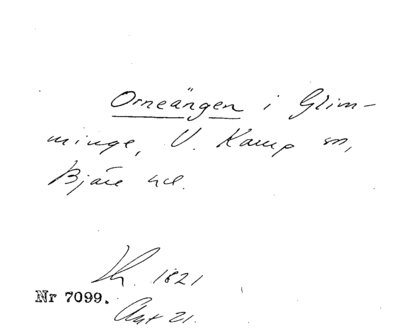 Orneängen i Glim-
minge, V. Karup sn,
Bjäre hd.
Lk. 1821
Nr 7099.
Akt 21.